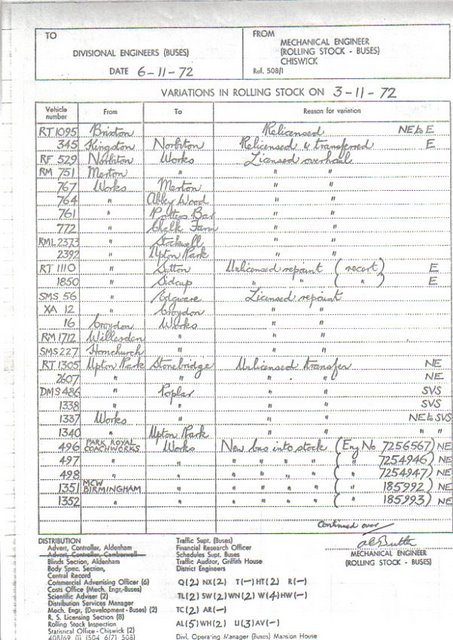 TO
DIVISIONAL ENGINEERS (BUSES)
DATE 6-11-72
FROM
MECHANICAL ENGINEER
(ROLLING STOCK - BUSES)
CHISWICK
Ref. 508/1
VARIATIONS IN ROLLING STOCK ON 3-11-72
Vehicle number From To Reason for variation
RT 1095 Brixton Relicensed NE to E
345 Kingston Norbiton Relicensed & transferred E
RF 529 Norbiton Works Licensed overhaul
RM 751 Merton " " "
767 Works Merton " "
764 " Abbey Wood " "
761 " Potters Bar " "
772 " Chalk Farm " "
RML 2373 " Stockwell " "
2392 " Upton Park " "
RT 1110 " Sutton Unlicensed repaint (recert) E
1850 " Sidcup " " ( " ) E
SMS 56 " Edgware Licensed repaint
XA 12 " Croydon " "
16 Croydon Works " "
RM 1712 Willesden " " "
SMS 227 Hornchurch " " "
RT 1305 Upton Park Stonebridge Unlicensed transfer NE
2607 " " " " NE
DMS 486 " Poplar " " SVS
1338 " " " " SVS
1337 Works " " " NE to SVS
1340 " Upton Park " " " "
496 PARK ROYAL COACHWORKS Works New bus into stock (Eng No 7256567) NE
497 " " " " " " ( " 7254946) NE
498 " " " " " " ( " 7254947) NE
1351 MCW BIRMINGHAM " " " " " ( " 185992) NE
1352 " " " " " " ( " 185993) NE
Continued over
MECHANICAL ENGINEER
(ROLLING STOCK - BUSES)
DISTRIBUTION
Advert. Controller, Aldenham
Advert. Controller, Camberwell
Blinds Section, Aldenham
Body Spec. Section,
Central Record
Commercial Advertising Officer (6)
Costs Office (Mech. Engr.-Buses)
Scientific Adviser (2)
Distribution Services Manager
Mech. Engr. (Development - Buses) (2)
R. S. Licensing Section (8)
Rolling Stock Inspection
Statistical Office - Chiswick (2)
Traffic Supt. (Buses)
Financial Research Officer
Schedules Supt. (Buses)
Traffic Auditor, Griffith House
District Engineers
Q(2) NX(2) T(-) HT(2) R(-)
TL(2) SW(2) WN(2) W(4) HW(-)
TC(2) AR(-)
AL(5) WH(2) U(3) AV(-)
Divl. Operating Manager (Buses) Mansion House